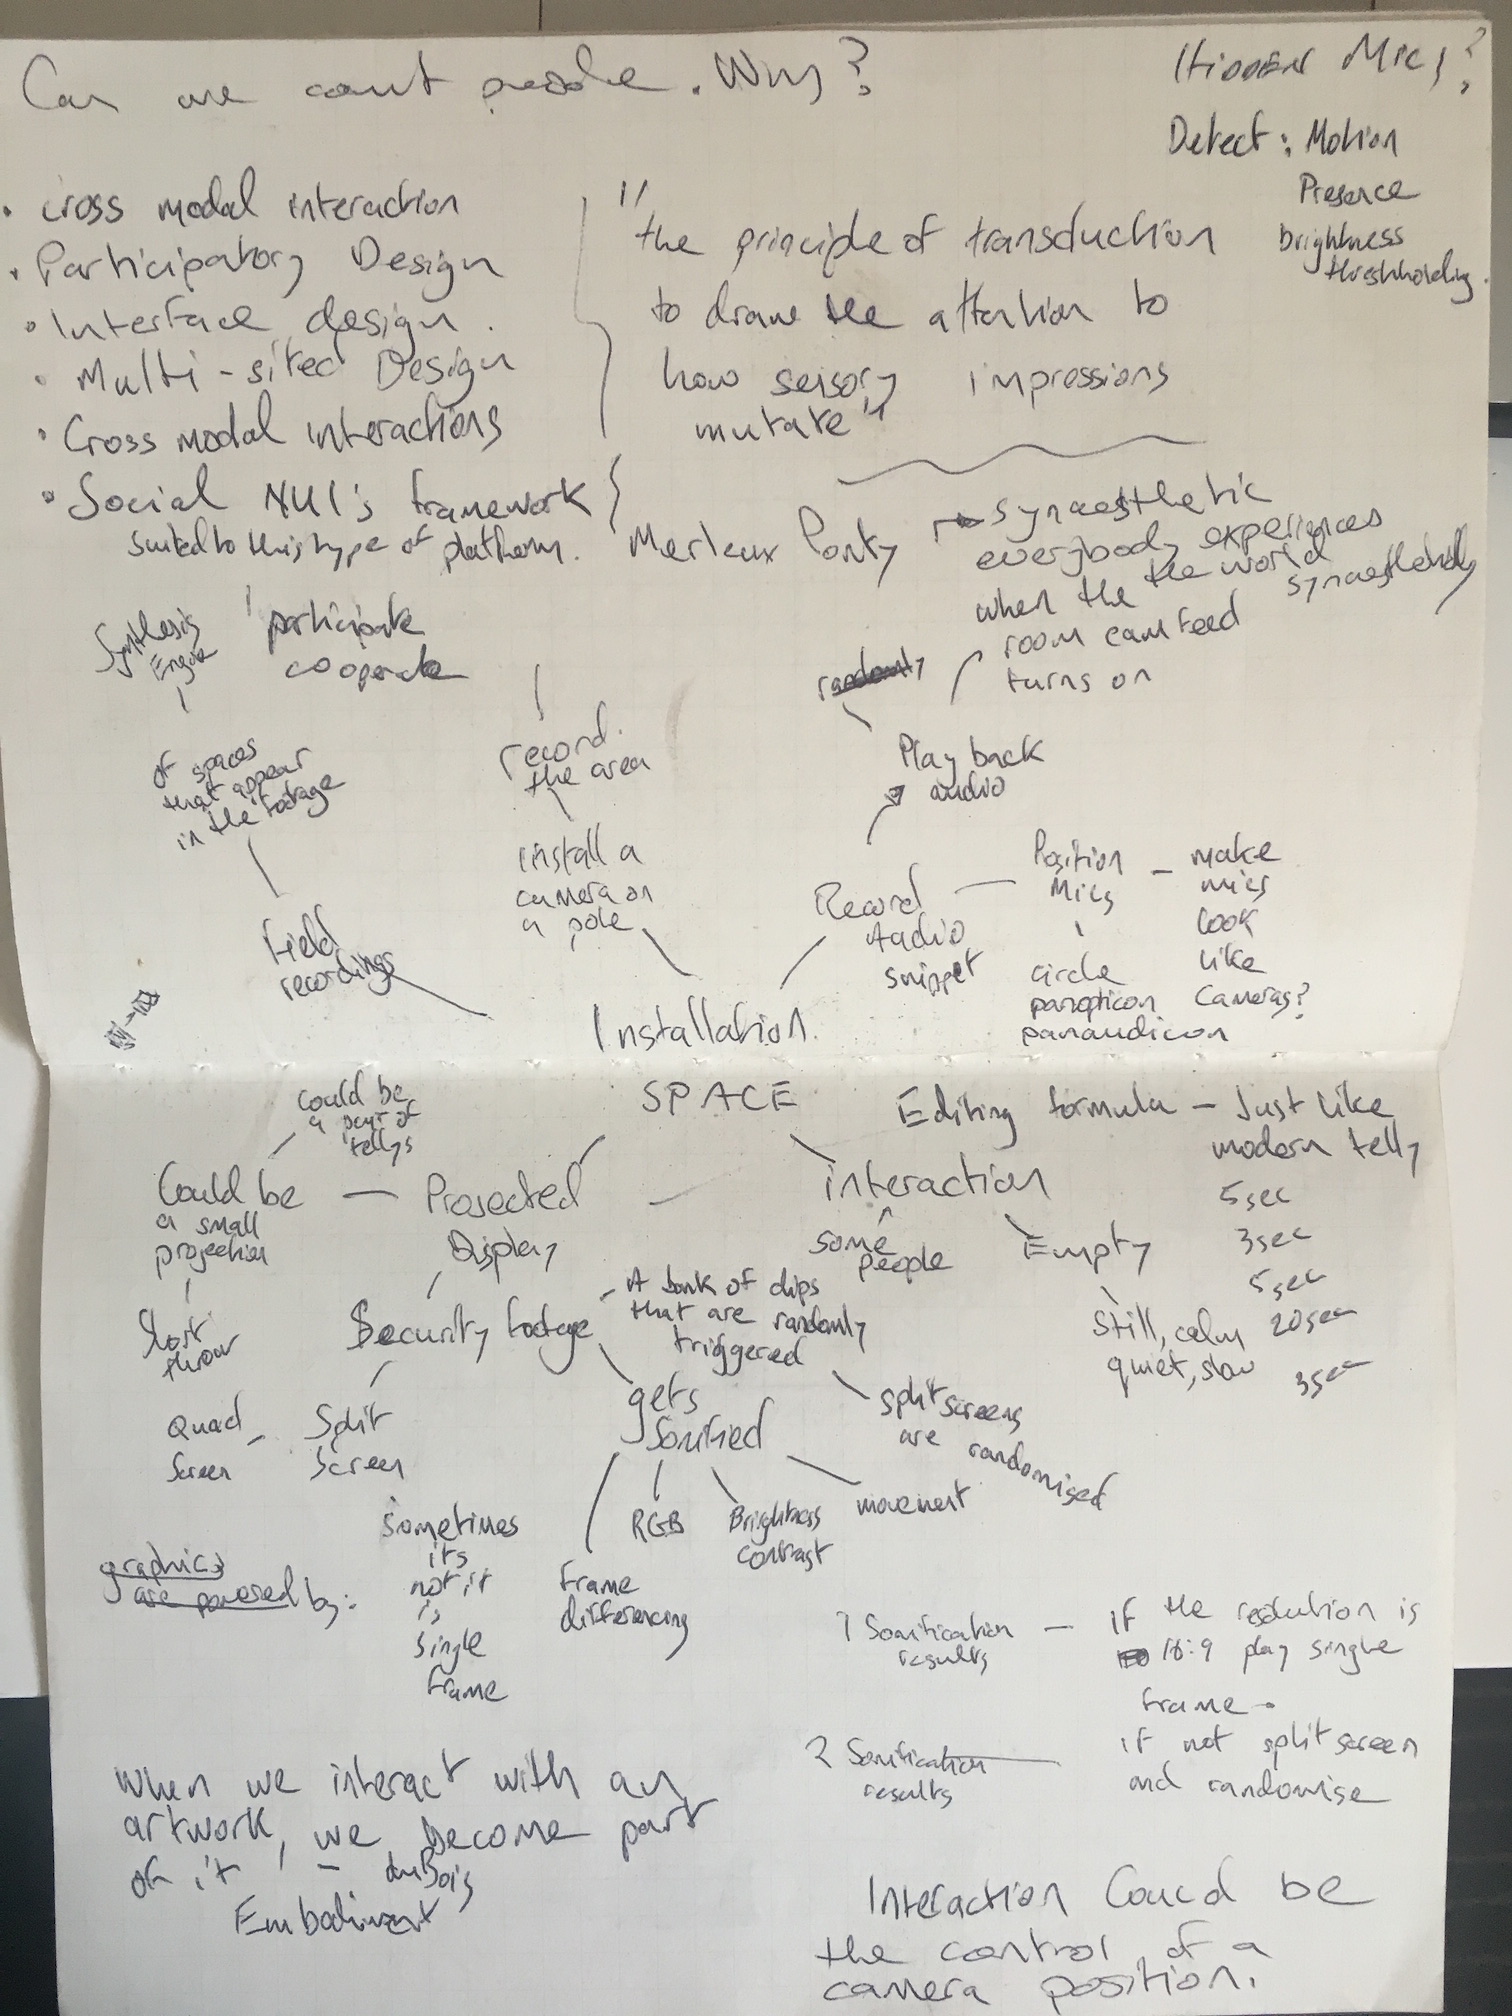 Can we count people. Why?
Hidden Mics?
Detect: Motion
Presence
brightness
threshholding.
• cross modal interaction
• Participatory Design
• Interface design.
• Multi-sited Design
• Cross modal interactions
• Social NUI's framework
suited to this type of platform.
"the principle of transduction
to draw the attention to
how sensory impressions
mutate"
Merleux Ponty → synaesthetic
everybody experiences
the world
synaesthetically
when the
room cam feed
turns on
Synthesis
Engine
participate
cooperate
randomly
of spaces
that appear
in the footage
record.
the area
Play back
audio
install a
camera on
a pole
Record
Audio
snippet
Position
Mics
make
mics
look
like
cameras?
circle
panopticon
panaudicon
field
recordings
Installation.
SPACE
Could be
a pair of
tellys
Editing formula - Just like
modern telly
5sec
3sec
5sec
20sec
3sec
Could be
a small
projection
Projected
Display
interaction
some
people
Empty
still, calm
quiet, slow
short
throw
Security footage
A bank of clips
that are randomly
triggered
Quad
Screen
Split
Screen
gets
Sonified
split screens
are randomised
sometimes
its
not, it
is
single
frame
RGB
Brightness
contrast
movement
frame
differencing
graphics
are powered by:
1 Sonification
results
if the resolution is
16:9 play single
frame -
2 Sonification
results
if not split screen
and randomise
When we interact with an
artwork, we become part
of it - duBois
Embodiment
Interaction Could be
the control of a
camera position.